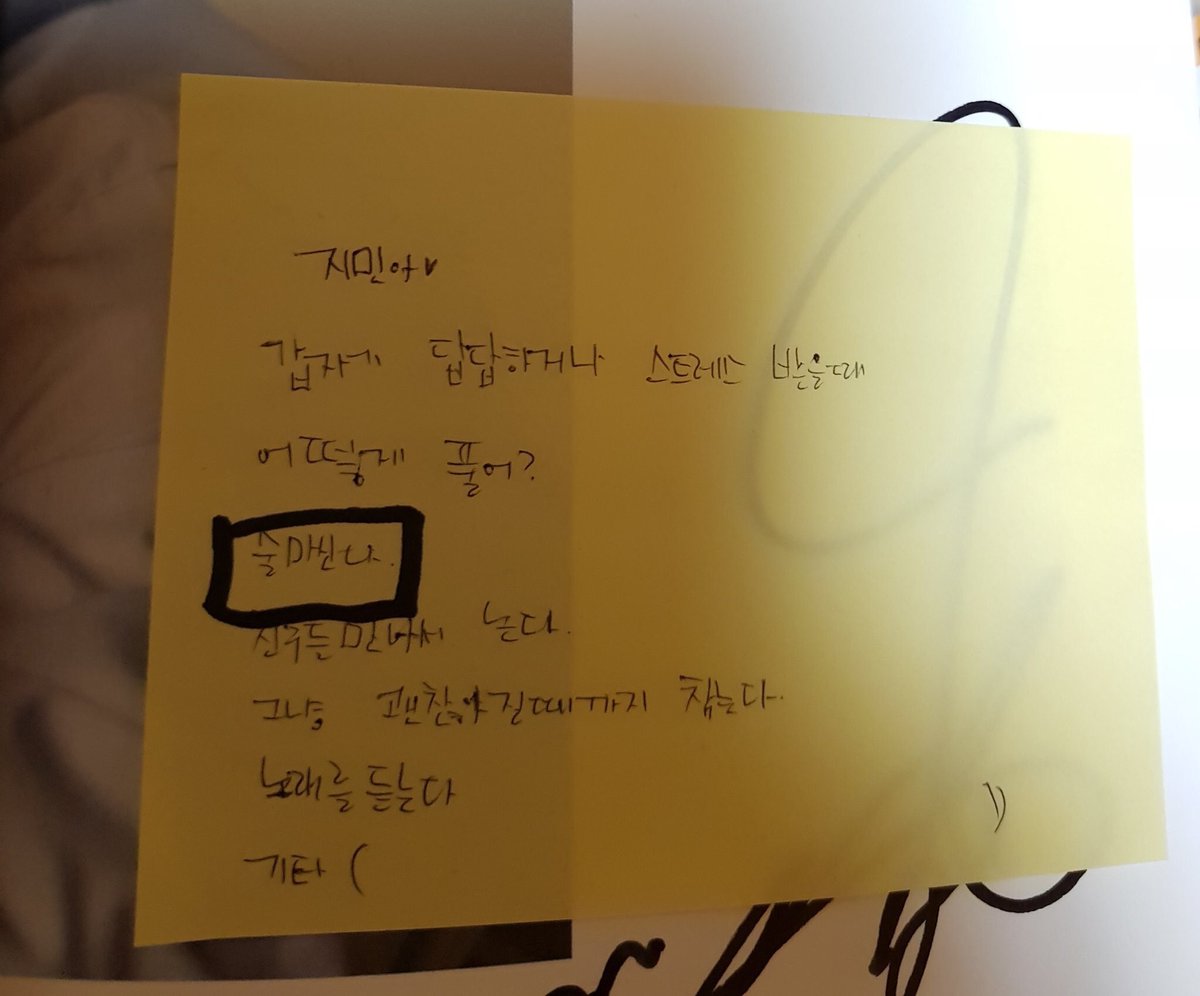 지민아♥
갑자기 답답하거나 스트레스 받을때
어떻게 풀어?
술마신다.
친구들만나서 논다.
그냥 괜찮아질때까지 참는다.
노래를 듣는다
기타 ( )